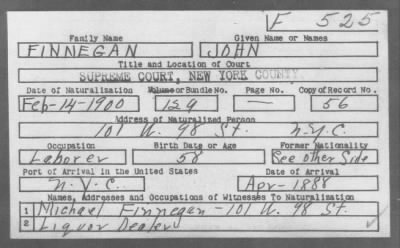 F 525
Family Name Given Name or Names
FINNEGAN JOHN
Title and Location of Court
SUPREME COURT, NEW YORK COUNTY
Date of Naturalization Volume or Bundle No. Page No. Copy of Record No.
Feb-14-1900 129 — 56
Address of Naturalized Person
101 W. 98 St. N.Y.C.
Occupation Birth Date or Age Former Nationality
Laborer 58 See other Side
Port of Arrival in the United States Date of Arrival
N.Y.C. Apr-1888
Names, Addresses and Occupations of Witnesses To Naturalization
1 Michael Finnegan-101 W. 98 St.
2 Liquor Dealer